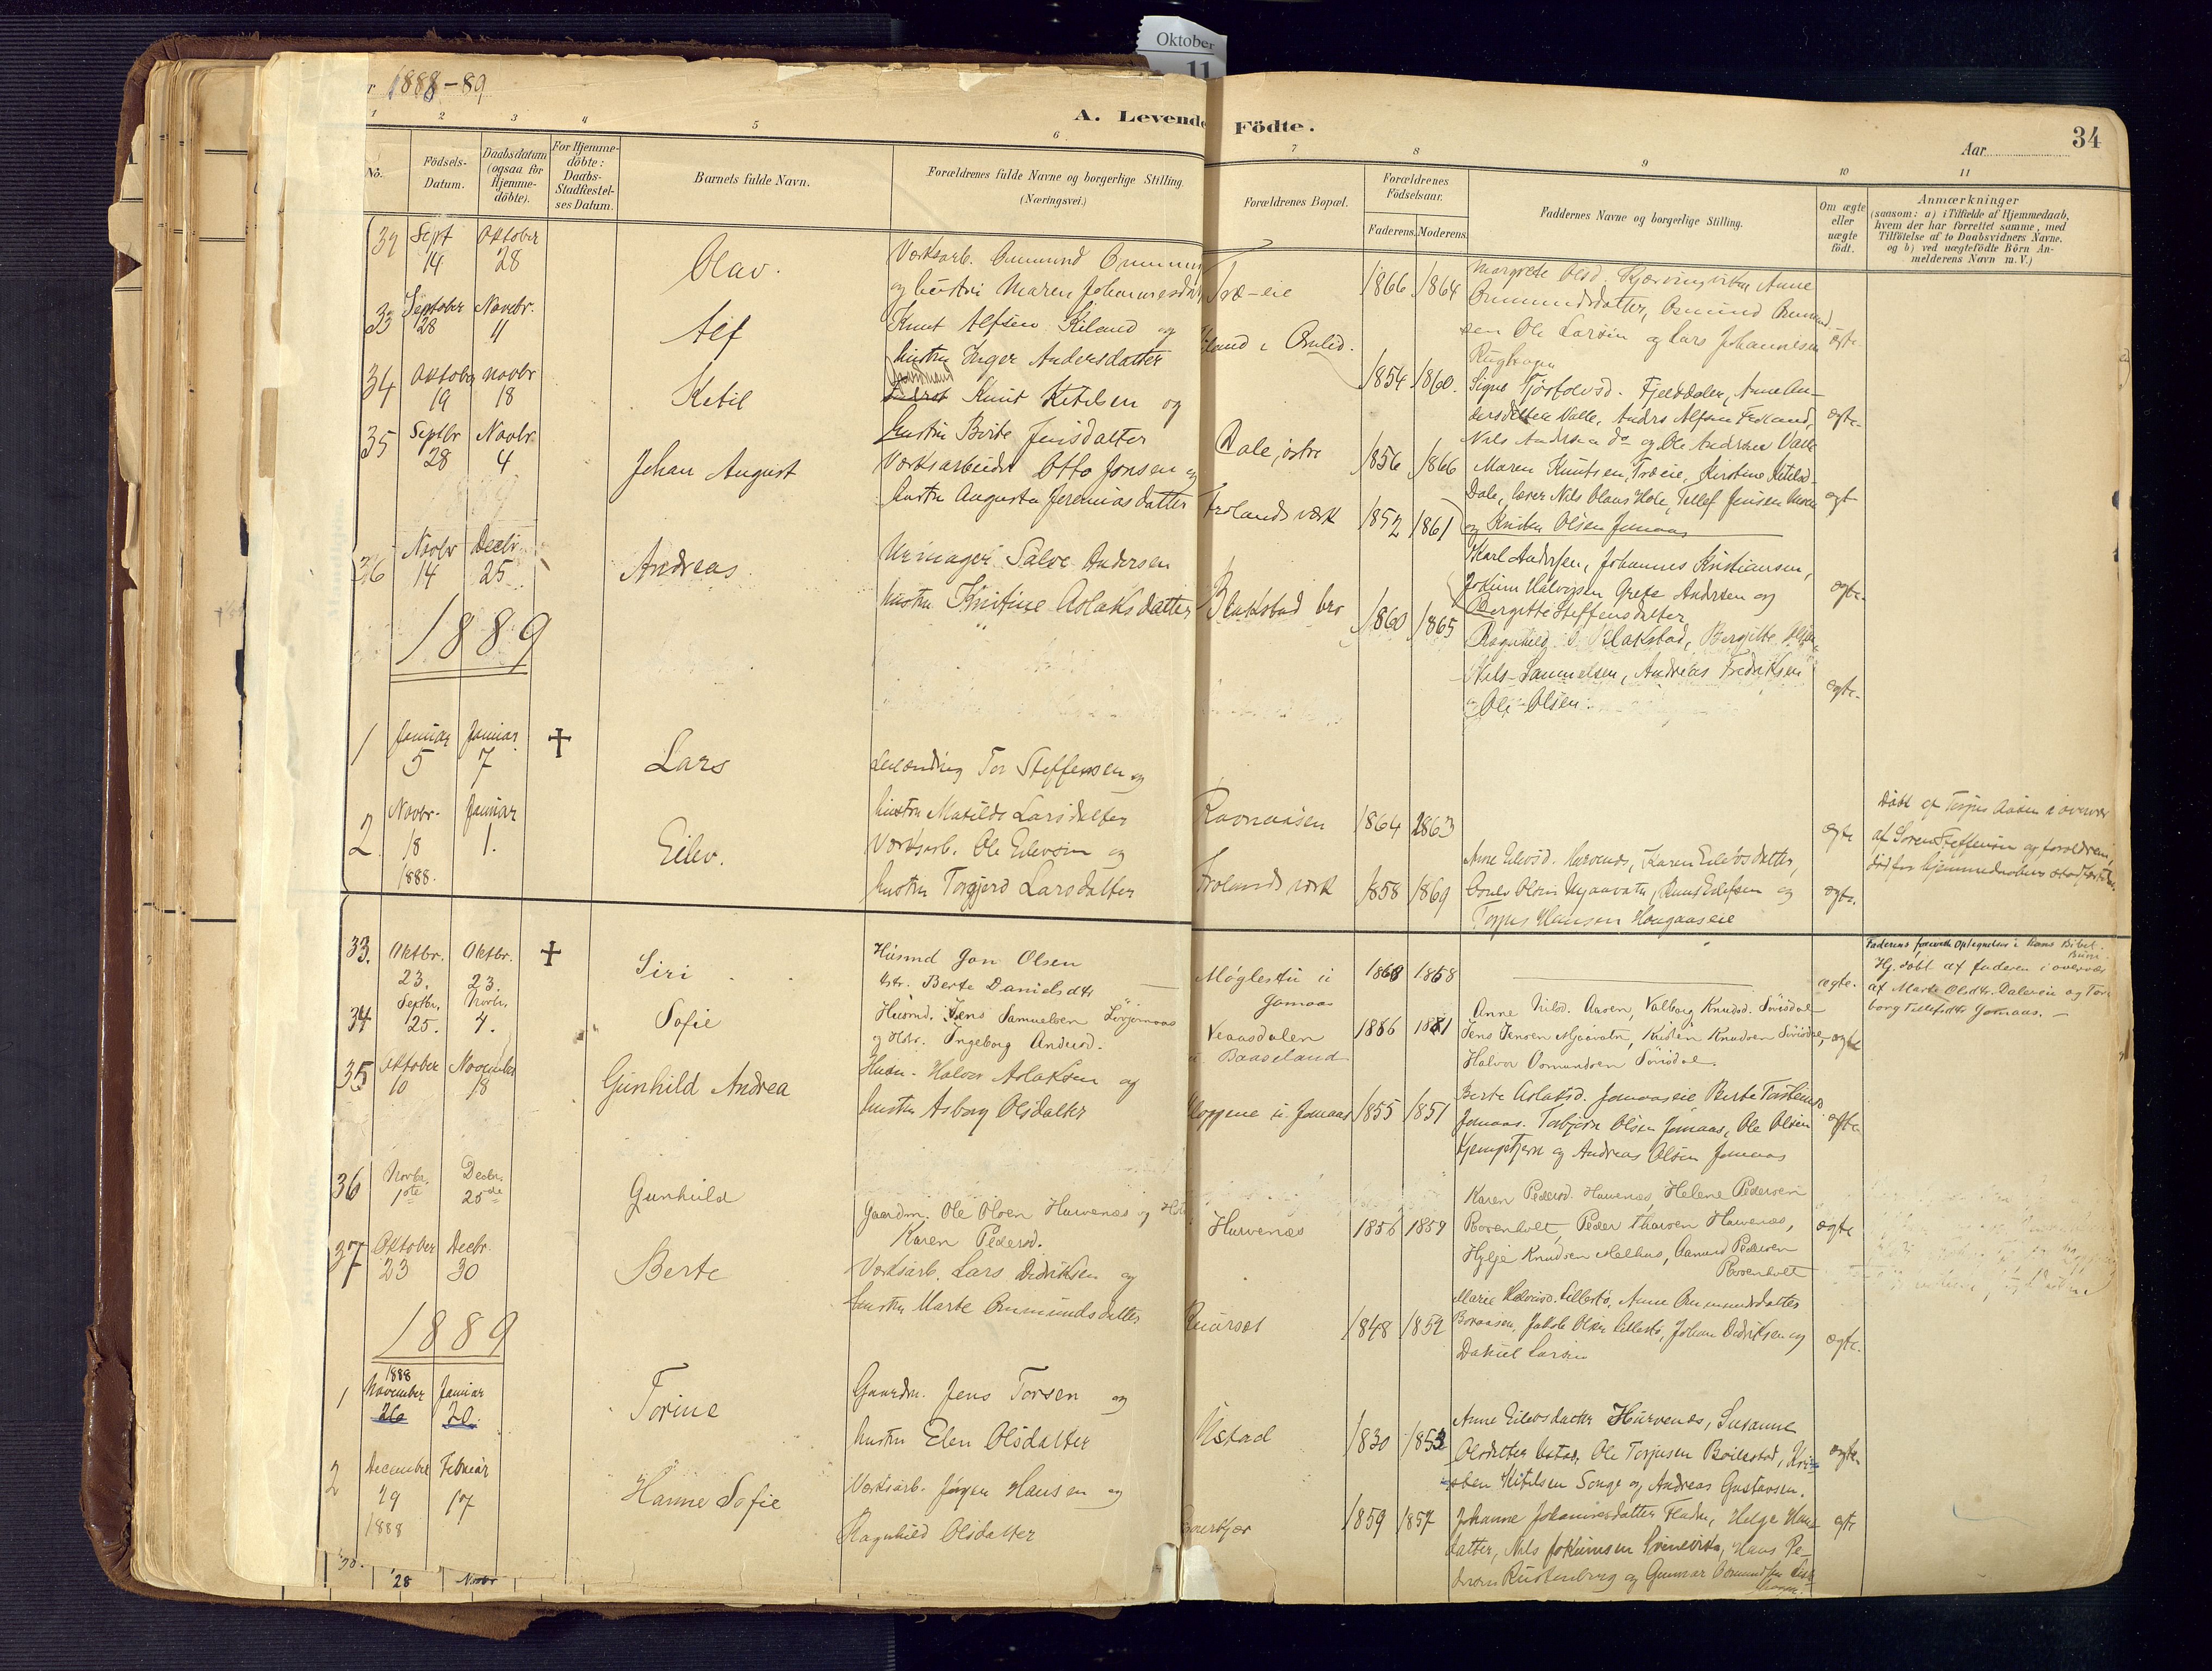 Oktober
11
1888-89
A. Levende Födte.
34
Aar
1 2 3 4 5 6 7 8 9 10 11
No.
Födsels-Datum.
Daabsdatum (ogsaa for Hjemme-döbte).
For Hjemme-döbte: Daabs-Stadfæstel-ses Datum.
Barnets fulde Navn.
Forældrenes fulde Navne og borgerlige Stilling.
(Næringsvei.)
Forældrenes Bopæl.
Forældrenes Födselsaar.
Faderens. Moderens.
Faddernes Navne og borgerlige Stilling.
Om ægte eller uægte födt.
Anmærkninger
(saasom: a) i Tilfælde af Hjemmedaab,
hvem der har forrettet samme, med
Tilföielse af to Daabsvidners Navne.
og b) ved uægtefödte Börn An-
melderens Navn m. V.)
Sept 14 Oktober 28 Olav.
Værksarb. Osmund
og hustru Maren Johannesdatter
Træ-eie 1866 1864
Margrete Olsd. Kjærringviken Anne
Osmundsdatter, Osmund
Ole Larsen og Lars Johannesen
ægte.
33 September 28 Novbr. 11 Alf
Knut Alfsen Kiland og
hustru Inger Andersdatter
i Omlid. 1854 1860.
Signe Fjeldalen, Anne An-
dersdatter Valle, Anders Alfsen
Nils Andersen do og Ole Andersen Valle
ægte.
34 Oktober 19 Novbr 18 Ketil
Gaardmand
Knut Ketilsen og
hustru Berte Jensdatter
Dale, østre 1856 1866
Maren Knutsen, Træeie, Kirstine Ketilsd.
Dale, lærer Nils Olaus Hole, Tellef Jensen
og Kristen Olsen Jomaas
ægt
35 Septbr 28 Novbr 4 Johan August
Værksarbeider Otto Jonsen og
hustru Augusta Jeremiasdatter
Frolands værk 1852 1861
Karl Andersen, Johannes Kristiansen,
Jokum Halvorsen Grete Andersen og
Bergitte Steffensdatter
ægte.
36 Novbr 14 Decbr. 25 Andreas
Urmager Salve Andersen
hustru Kristine Aslaksdatter
Blakstad bro 1860 1865
Ragnhild Blakstad, Bergitte Olsen
Nils Samuelsen, Andreas Fredriksen
og Ole Olsen.
ægte.
1889
1 Januar 5 Januar 7 † Lars
Tor Steffensen og
hustru Matilde Larsdatter
Ravnaasen 1864 1863
ægte
Døbt af Torjus Aasen i overvær
af Søren Steffensen og forældrene,
død før hjemmedaaben stadfæstedes.
2 Novbr. 18 1888. Januar 1. Eilev.
Værksarb. Ole Eilevsen og
hustru Torgjerd Larsdatter
Frolands værk 1858 1869
Anne Eilevsd. Hurvenes, Karen Eilevsdatter,
Olsen Mjaavatn, Knut Eilefsen og
Torjus Hansen Haugaaseie
ægte.
33. Oktbr. 23. Oktbr. 23. † Siri
Husmd Jon Olsen
Hstr. Berte Danielsdtr
Møglestu u Jomaas 1868 1868
ægte.
Faderens Optegnelse i hans Bibel.
Hj. døbt af faderen i overvær
af Marte Olsdtr. Daleeie og Tor-
borg Tellefsdtr Jomaas.
34 Septbr. 25. Novbr. 4. Sofie
Husmd. Jens Samuelsen
og Hstr. Ingeborg Andersd.
Veaasdalen u. Baaseland 1886 1881
Anne Nilsd. Aasen, Valborg Knudsd. Sørisdal
Jens Jensen Mjaavatn, Kristen Knudsen Sørisdal,
Halvor Osmundsen Sørisdal.
ægte
35 Oktober 10 November 18 Gunhild Andrea
Husm. Halvor Aslaksen og
hustru Asborg Olsdatter
u Jomaas 1855 1851
Berte Aslaksd. Jomaaseie Berte Torsteinsd
Jomaas. Torbjørn Olsen Jomaas, Ole Olsen
Kjempetjern og Andreas Olsen Jomaas
ægte
36 Novbr. 1ste Decbr. 25de Gunhild
Gaardm. Ole Olsen Hurvenæs og Hstr
Karen Pedersd.
Hurvenæs 1856 1859
Karen Pedersd. Hurvenæs, Helene Pedersen
Rosenholt, Peder Thorsen Hurvenæs,
Hylje Knudsen Malhus, Aanund Pedersen
Rosenholt
ægte
37 Oktober 23 Decbr 30 Berte
Værksarb. Lars Didriksen og
hustru Marte Osmundsdatter
1848 1852
Marie Halvorsd. Lillestø, Anne Osmundsdatter
Jakob Olsen Lillestø, Johan Didriksen og
Daniel Larsen
ægte.
1889
1 1888 November 26 Januar 20. Torine
Gaardm. Jens Torsen og
hustru Elen Olsdatter
Ustad 1830 1853
Anne Eilevsdatter Hurvenes, Susanne
Olsdatter Ustad, Ole Torjusen Bøilestad, Kri-
sten Ketilsen Songe og Andreas Gustavsen.
ægte.
2 December 29 1888 Februar 17 Hanne Sofie
Værksarb. Jørgen Hansen og
Ragnhild Olsdatter
1859 1857
Johanne Johannesdatter Helge Hans-
datter, Nils Jokumsen Svinevika, Hans Pe-
dersen Rustenborg og Gunnar Osmundsen
ægte
28 Novbr